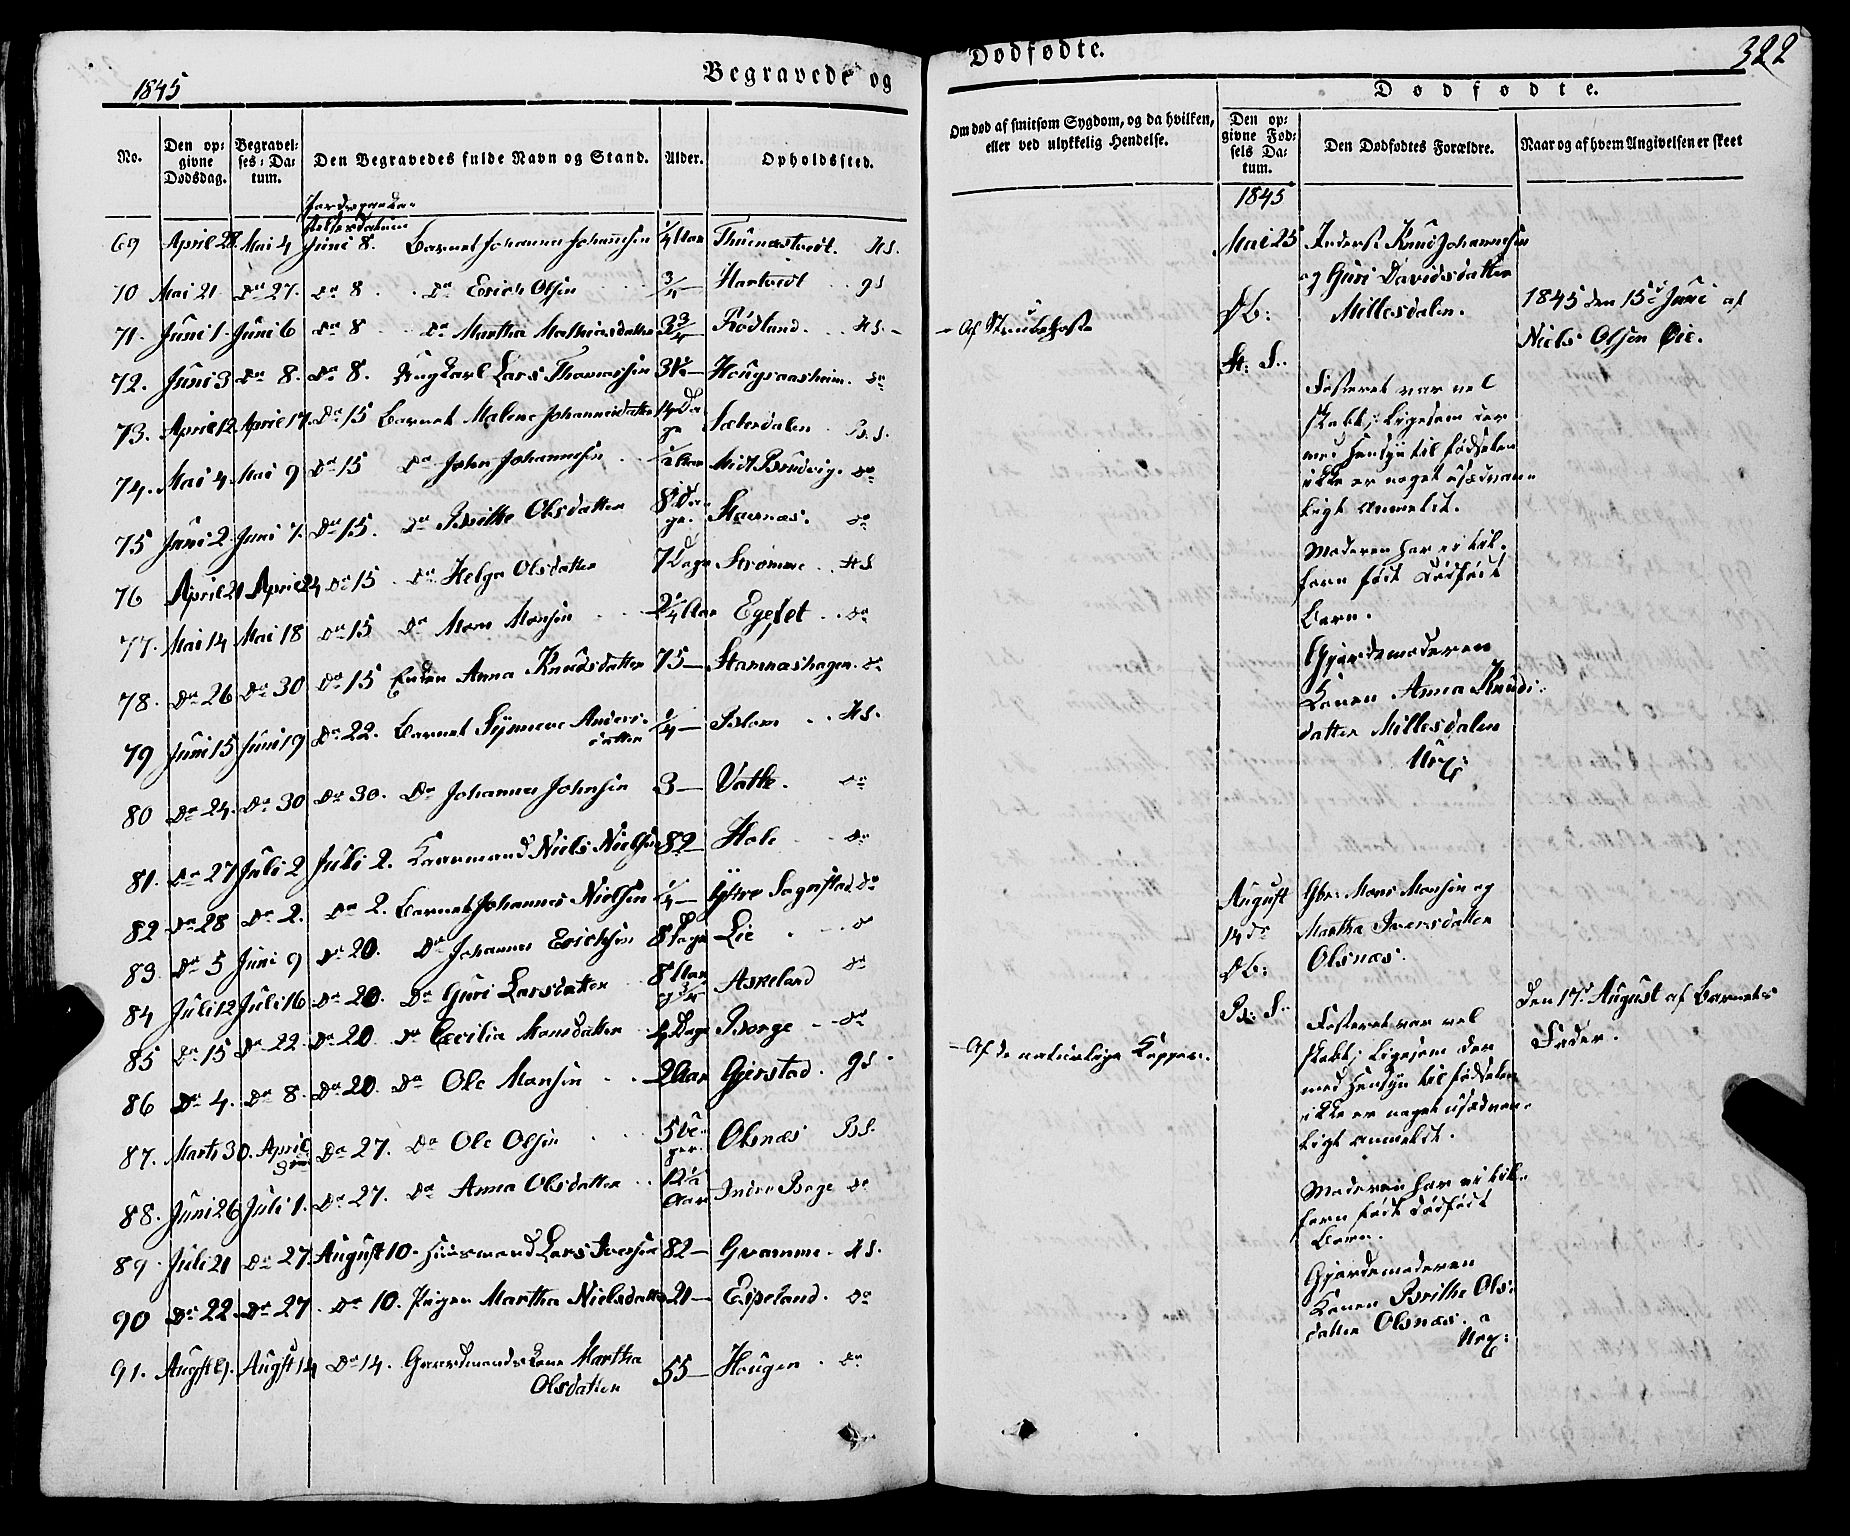 1845
Begravede og
No.
Den opgivne Dødsdag.
Begravelses-Datum.
Den Begravedes fulde Navn og Stand.
Alder.
Opholdssted.
Jordspaaka-
stelsesdatum
69 April 28 Mai 4 Juni 8. Barnet Johannes Johannesen 1/4 Aar Thunestvedt. Hs.
70 Mai 21 Do 27. Do 8 Do Erick Olsen 3/4 Hartvedt gs
71. Juni 1 Juni 6 Do 8 Do Martha Mathiasdatter 2 3/4 Rødland. Hs.
72. Juni 3 Do 8. Do 8. Ungkarl Lars Thomassen 31 1/2 — Hougsaasheim. do
73. April 12 April 17 Do 15 Barnet Malene Johannesdatter 14 Da-
ge Sæterdalen Bs.
74. Mai 4. Mai 9 Do 15 Do John Johannesen 1/2 Aar Midt Brudvig. do
75 Juni 2 Juni 7. Do 15. Do Brithe Olsdatter 8 Da-
ge. Stavnæs. do
76 April 21 April 24 Do 15 Do Helga Olsdatter 7 Dage Strømme Hs
77. Mai 14 Mai 18 Do 15 Do Mons Monsen 2 1/4 Aar Egeset do
78. Do 26 Do 30 Do 15 Enken Anna Knudsdatter 75 — Stamnæshagen. do
79 Juni 15 Juni 19 Do 22. Barnet Synneve Anders-
datter 1/4 — Blom Hs.
80 Do 24. Do 30 Do 30. Do Johannes Johnsen 3 — Vatle. do
81. Do 27 Juli 2 Juli 2. Kaarmand Niels Nielsen 82 — Hole do
82 Do 28 Do 2. Do 2. Barnet Johannes Nielsen 1/4 — Ystre Sagestad do
83. Do 5 Juni 9 Do 20. Do Johannes Ericksen 8 Dage Lie do
84 Juli 12 Juli 16 Do 20. Do Guri Larsdatter 8 Aar
og 3/4 Askeland do
85 Do 15 Do 22. Do 20. Do Cecilia Monsdatter 4 Dage Borge do
86 Do 4. Do 8. Do 20. Do Ole Monsen 2 Aar Gjerstad. gs.
87. Marts 30. April 3 Do 27. Do Ole Olsen 5 Ue-
ger. Olsnæs Bs.
88. Juni 26 Juli 1. Do 27. Do Anna Olsdatter 12 1/2
Aar Indre Boge do
89. Juli 21 Do 27 August 10. Huusmand Lars Iversen 82 — Gramme. Hs.
90 Do 22. Do 27. Do 10. Pigen Martha Nielsdatter 21 — Espeland. do
91. Augst 9. Augst 14 Do 14. Gaardmandskone Martha
Olsdatter 55 — Hougen do
Dødfødte.
322
Om død af smitsom Sygdom, og da hvilken,
eller ved ulykkelig Hendelse.
Dødfødte.
Den opgivne Fødsels Datum.
Den Dødfødtes Forældre.
Naar og af hvem Angivelsen er skeet
1845
– Af Strubehoste
– Af de naturlige Kopper.
Mai 25
Db:
H: S:
Inderst Knud Johannesen
og Guri Davidsdatter
Millesdalen.
Fosteret var vel
skabt; ligesom der
med Hensyn til Fødselen
ikke er noget usædvan-
ligt anmeldt.
Moderen har ei til-
forn født dødfødt
Barn.
Gjordemoderen
Konen Anna Knuds-
datter Millesdalen
1845 den 15de Juni af
Niels Olsen Øie.
August
14de
Db:
B: S:
Gbr: Mons Monsen og
Martha Iversdatter
Olsnæs.
Fosteret var vel
skabt; ligesom der
med Hensyn til Fødselen
ikke er noget usædvan-
ligt anmeldt.
Moderen har ei til-
forn født dødfødt
Barn.
Gjordemoderen
Konen Brithe Ols-
datter Olsnæs.
Den 17de August af Barnets
Fader.